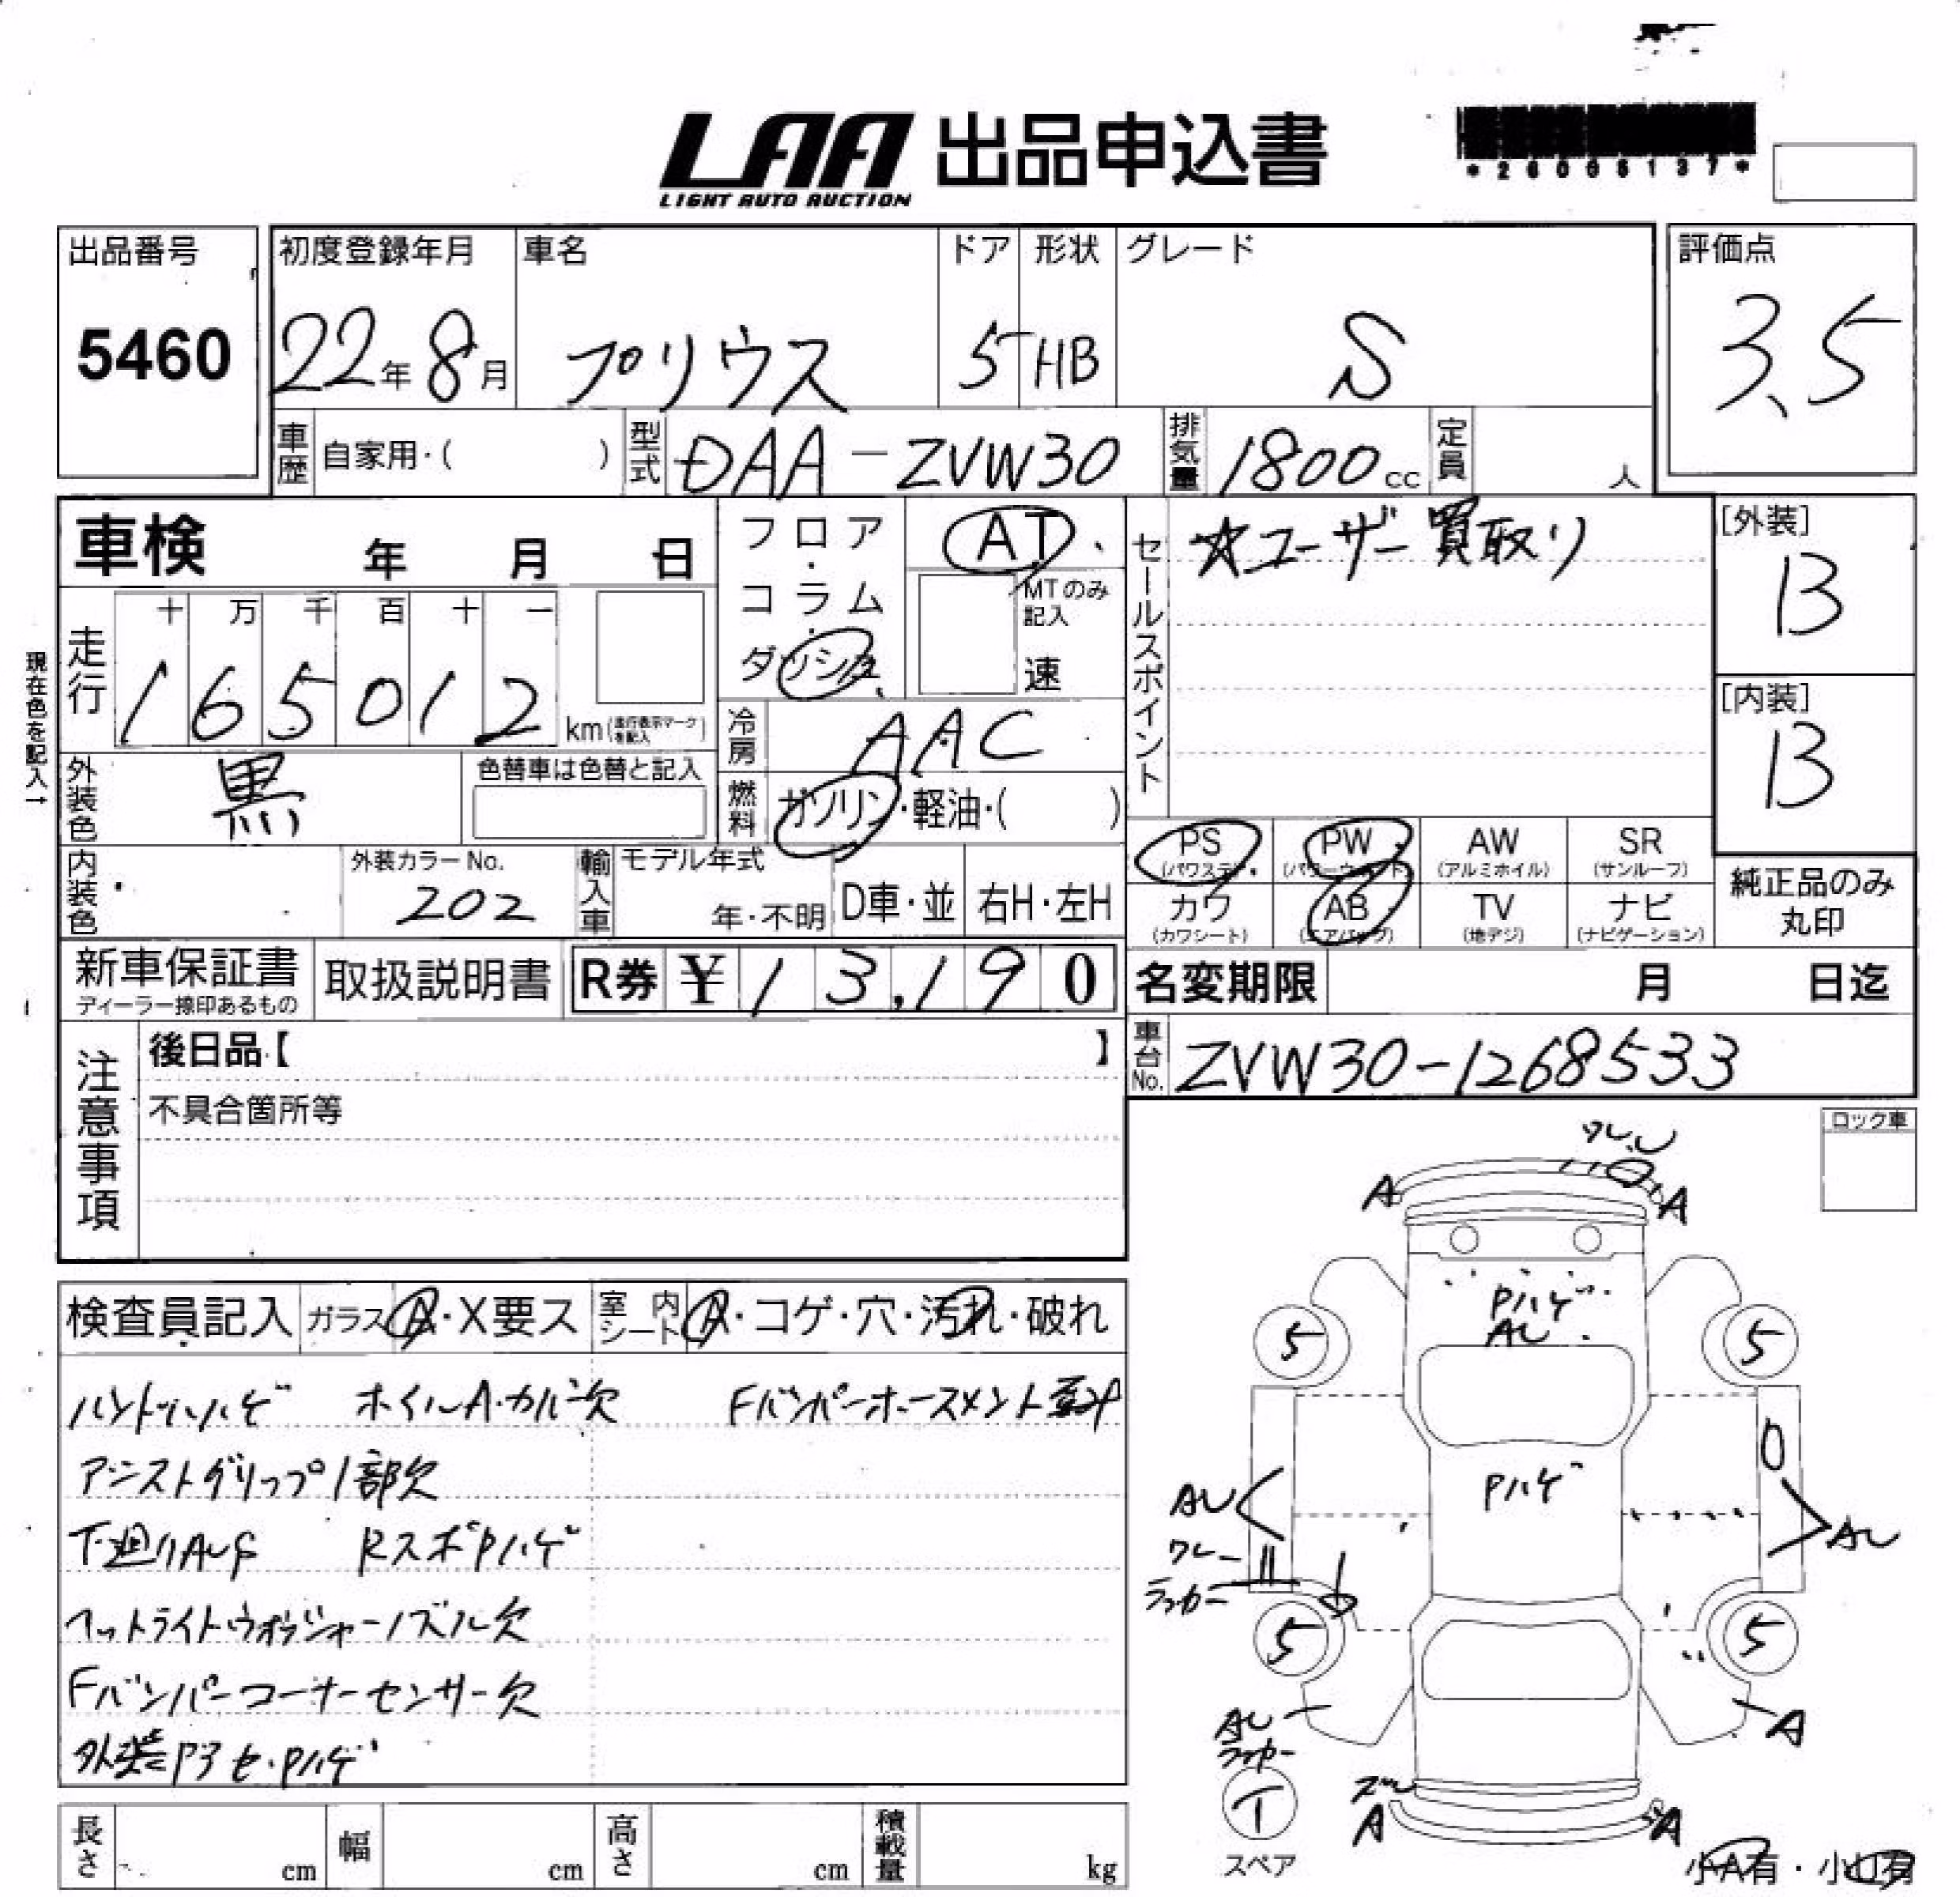 LAA 出品申込書
LIGHT AUTO AUCTION
*26006137*
出品番号
5460
初度登録年月
22年8月
車名
プリウス
ドア
5
形状
HB
グレード
S
評価点
3.5
車歴 自家用・( )
型式 DAA-ZVW30
排気量 1800cc
定員 人
車検 年 月 日
フロア・コラム・ダッシュ
AT
MTのみ記入
速
セールスポイント
☆ユーザー買取り
[外装]
B
[内装]
B
現在色を記入→
走行
十 万 千 百 十 一
1 6 5 0 1 2
km(走行表示マークを記入)
冷房 AAC
外装色 黒
色替車は色替と記入
燃料 ガソリン・軽油・( )
PS (パワステ)
PW (パワーウィンド)
AW (アルミホイル)
SR (サンルーフ)
カワ (カワシート)
AB (エアバッグ)
TV (地デジ)
ナビ (ナビゲーション)
純正品のみ丸印
内装色
外装カラーNo.
202
輸入車
モデル年式
年・不明
D車・並
右H・左H
新車保証書
ディーラー捺印あるもの
取扱説明書
R券 ¥13,190
名変期限 月 日迄
車台No. ZVW30-1268533
注意事項
後日品【 】
不具合箇所等
ロック車
ワレ
A A
Pハゲ
AU
5 5
Pハゲ
AU
AU
ワレ
ラッカー
5 5
AU
ラッカー
A
T
スペア
A A
小A有・小U有
検査員記入
ガラス A・X要ス
室内シート A・コゲ・穴・汚れ・破れ
ハンドルハゲ ホイルA・カバー欠 Fバンパーホースメント
アシストグリップ1部欠
下廻りAUS RスポPハゲ
ヘットライトウォッシャーノズル欠
Fバンパーコーナーセンサー欠
外装Pヲセ・Pハゲ
長さ cm
幅 cm
高さ cm
積載量 kg